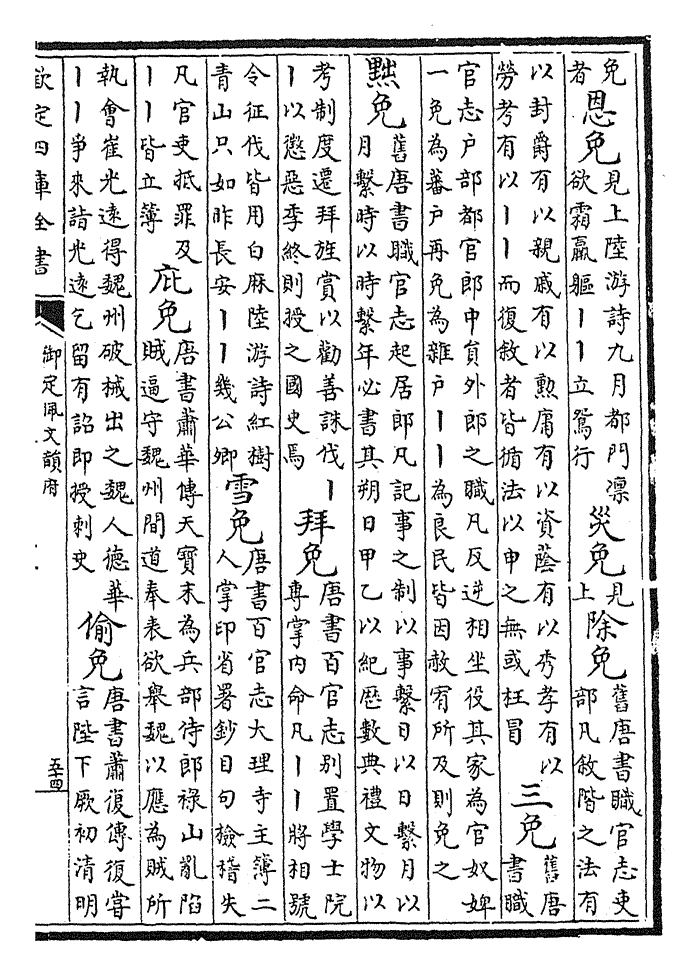 免者恩免見上陸游詩九月都門凛欲霜羸軀丨丨立鴛行災免見上除免舊唐書職官志吏部凡敘階之法有
以封爵有以親戚有以勲庸有以資蔭有以秀孝有以勞考有以丨丨而復敘者皆循法以申之無或枉冒三免舊唐書職
官志户部都官郎中員外郎之職凡反逆相坐役其家為官奴婢一免為蕃户再免為雜户丨丨為良民皆因赦宥所及則免之
黜免舊唐書職官志起居郎凡記事之制以事繫日以日繫月以月繫時以時繫年必書其朔日甲乙以紀歴數典禮文物以
考制度遷拜旌賞以勸善誅伐丨丨以懲惡季終則授之國史焉拜免唐書百官志别置學士院專掌内命凡丨丨將相號
令征伐皆用白麻陸游詩紅樹青山只如昨長安丨丨幾公卿雪免唐書百官志大理寺主簿二人掌印省署鈔目句檢稽失
凡官吏抵罪及丨丨皆立簿庇免唐書蕭華傳天寶末為兵部侍郎祿山亂陷賊逼守魏州間道奉表欲舉魏以應為賊所
執會崔光逺得魏州破械出之魏人德華丨丨爭來詣光逺乞留有詔即授刺史偷免唐書蕭復傳復嘗言陛下厥初清明
欽定四庫全書
御定佩文韻府
五十四